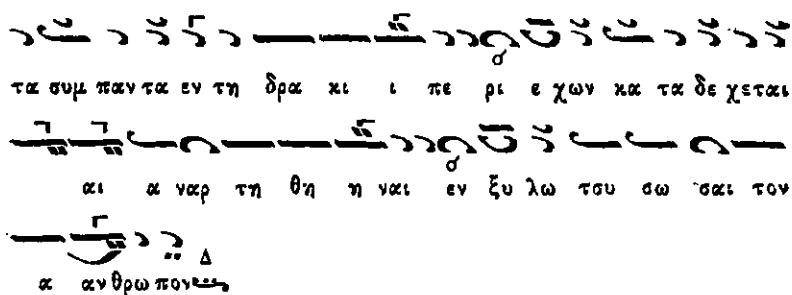 τα συμ παν τα εν τη δρα κι ι πε ρι ε χων κα τα δε χεται
αι α ναρ τη θη η ναι εν ξυ λω τσυ σω σαι τον
α αν θρω πον Δ